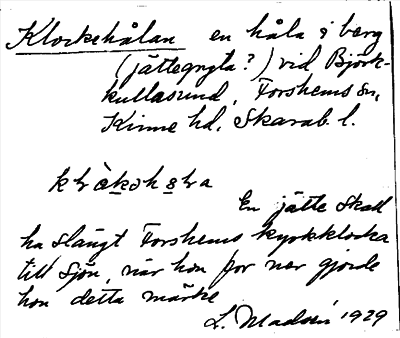 Klockehålan en håla i berg
(jättegryta?) vid Björk-
kullasund, Forshems sn,
Kinne hd, Skarab. l.
En jätte skall
ha slängt Forshems kyrkklocka
till sjön, när hon for ner gjorde
hon detta märke
L. Madsén 1929